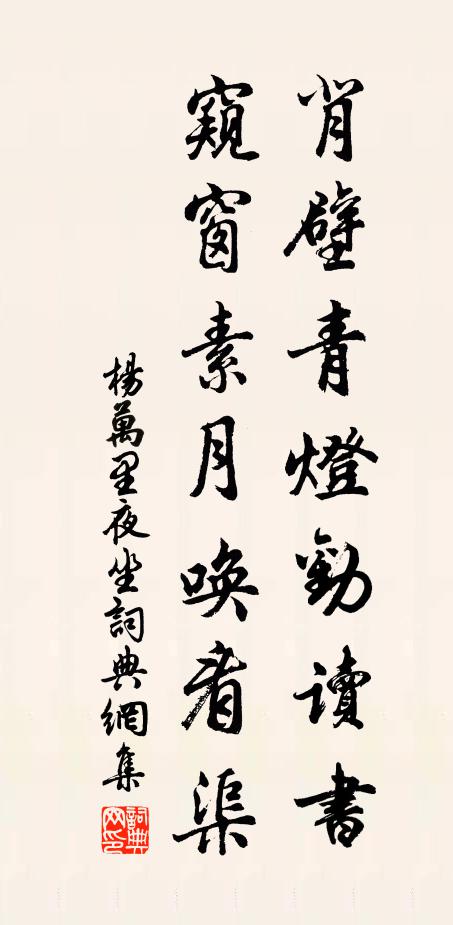 背壁青燈勸讀書
窺窗素月喚看渠
楊萬里夜坐詞典網集
詞典網印